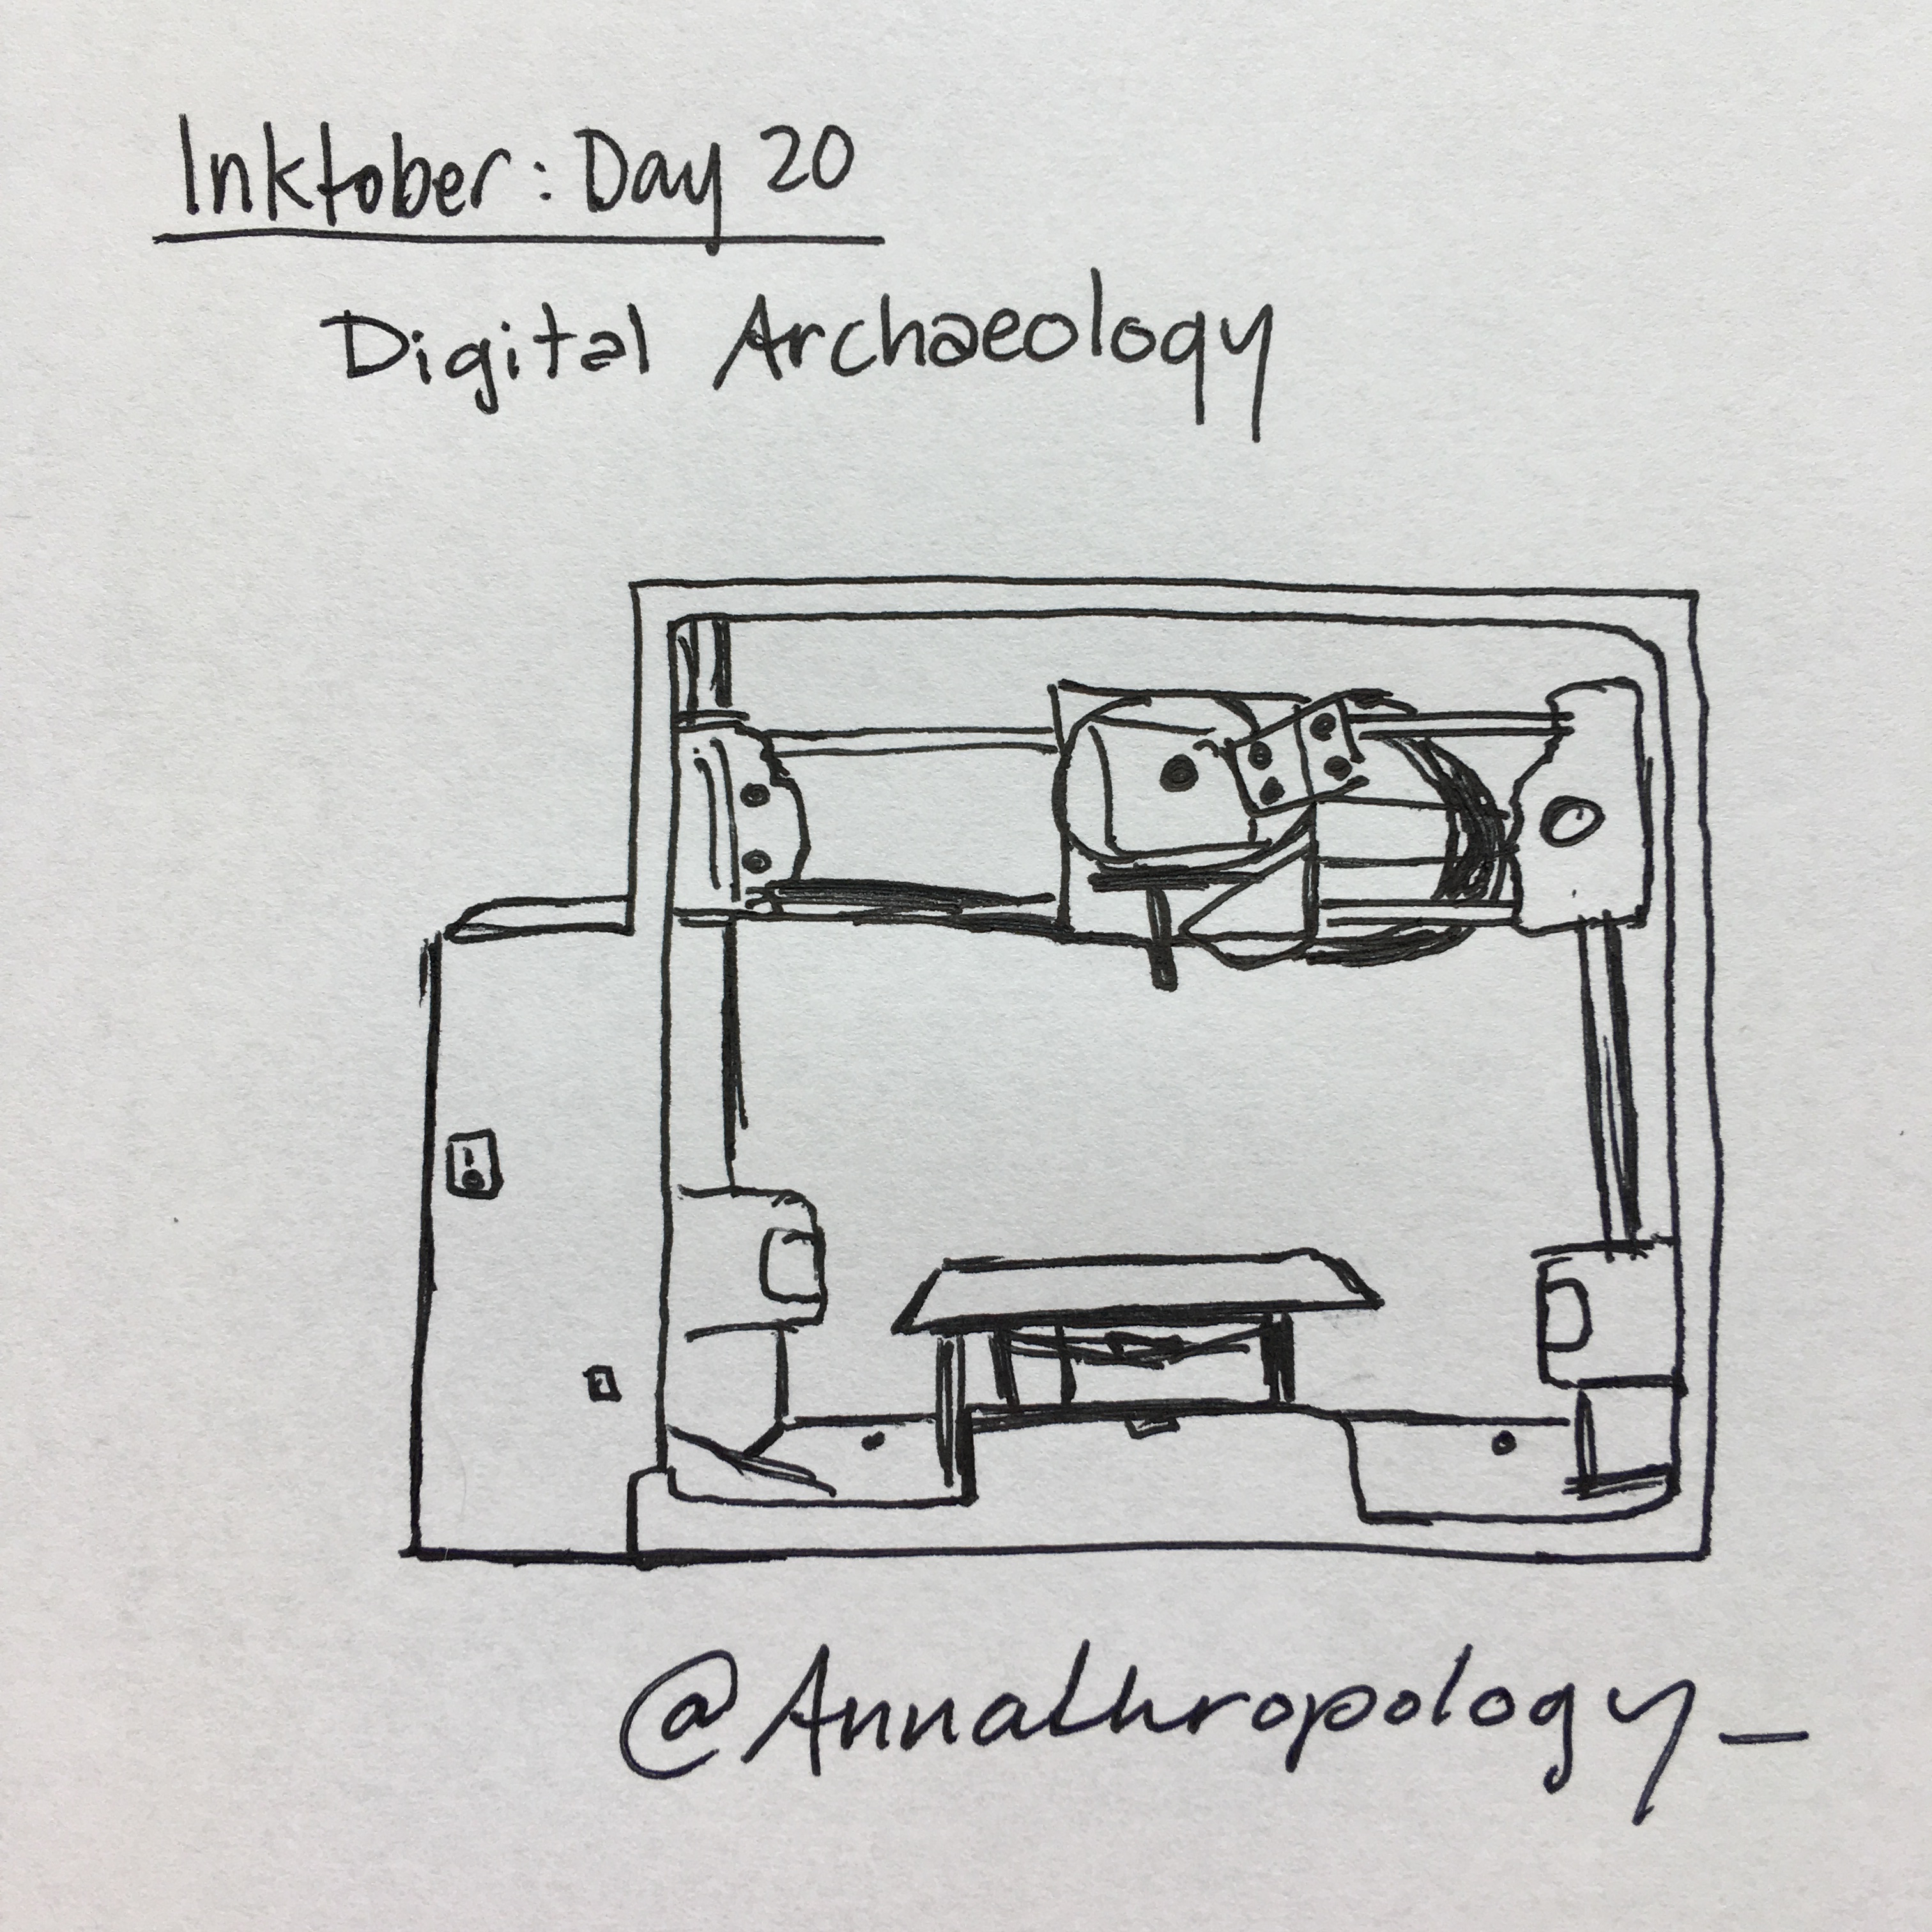 Inktober: Day 20
Digital Archaeology
@Annathropology_